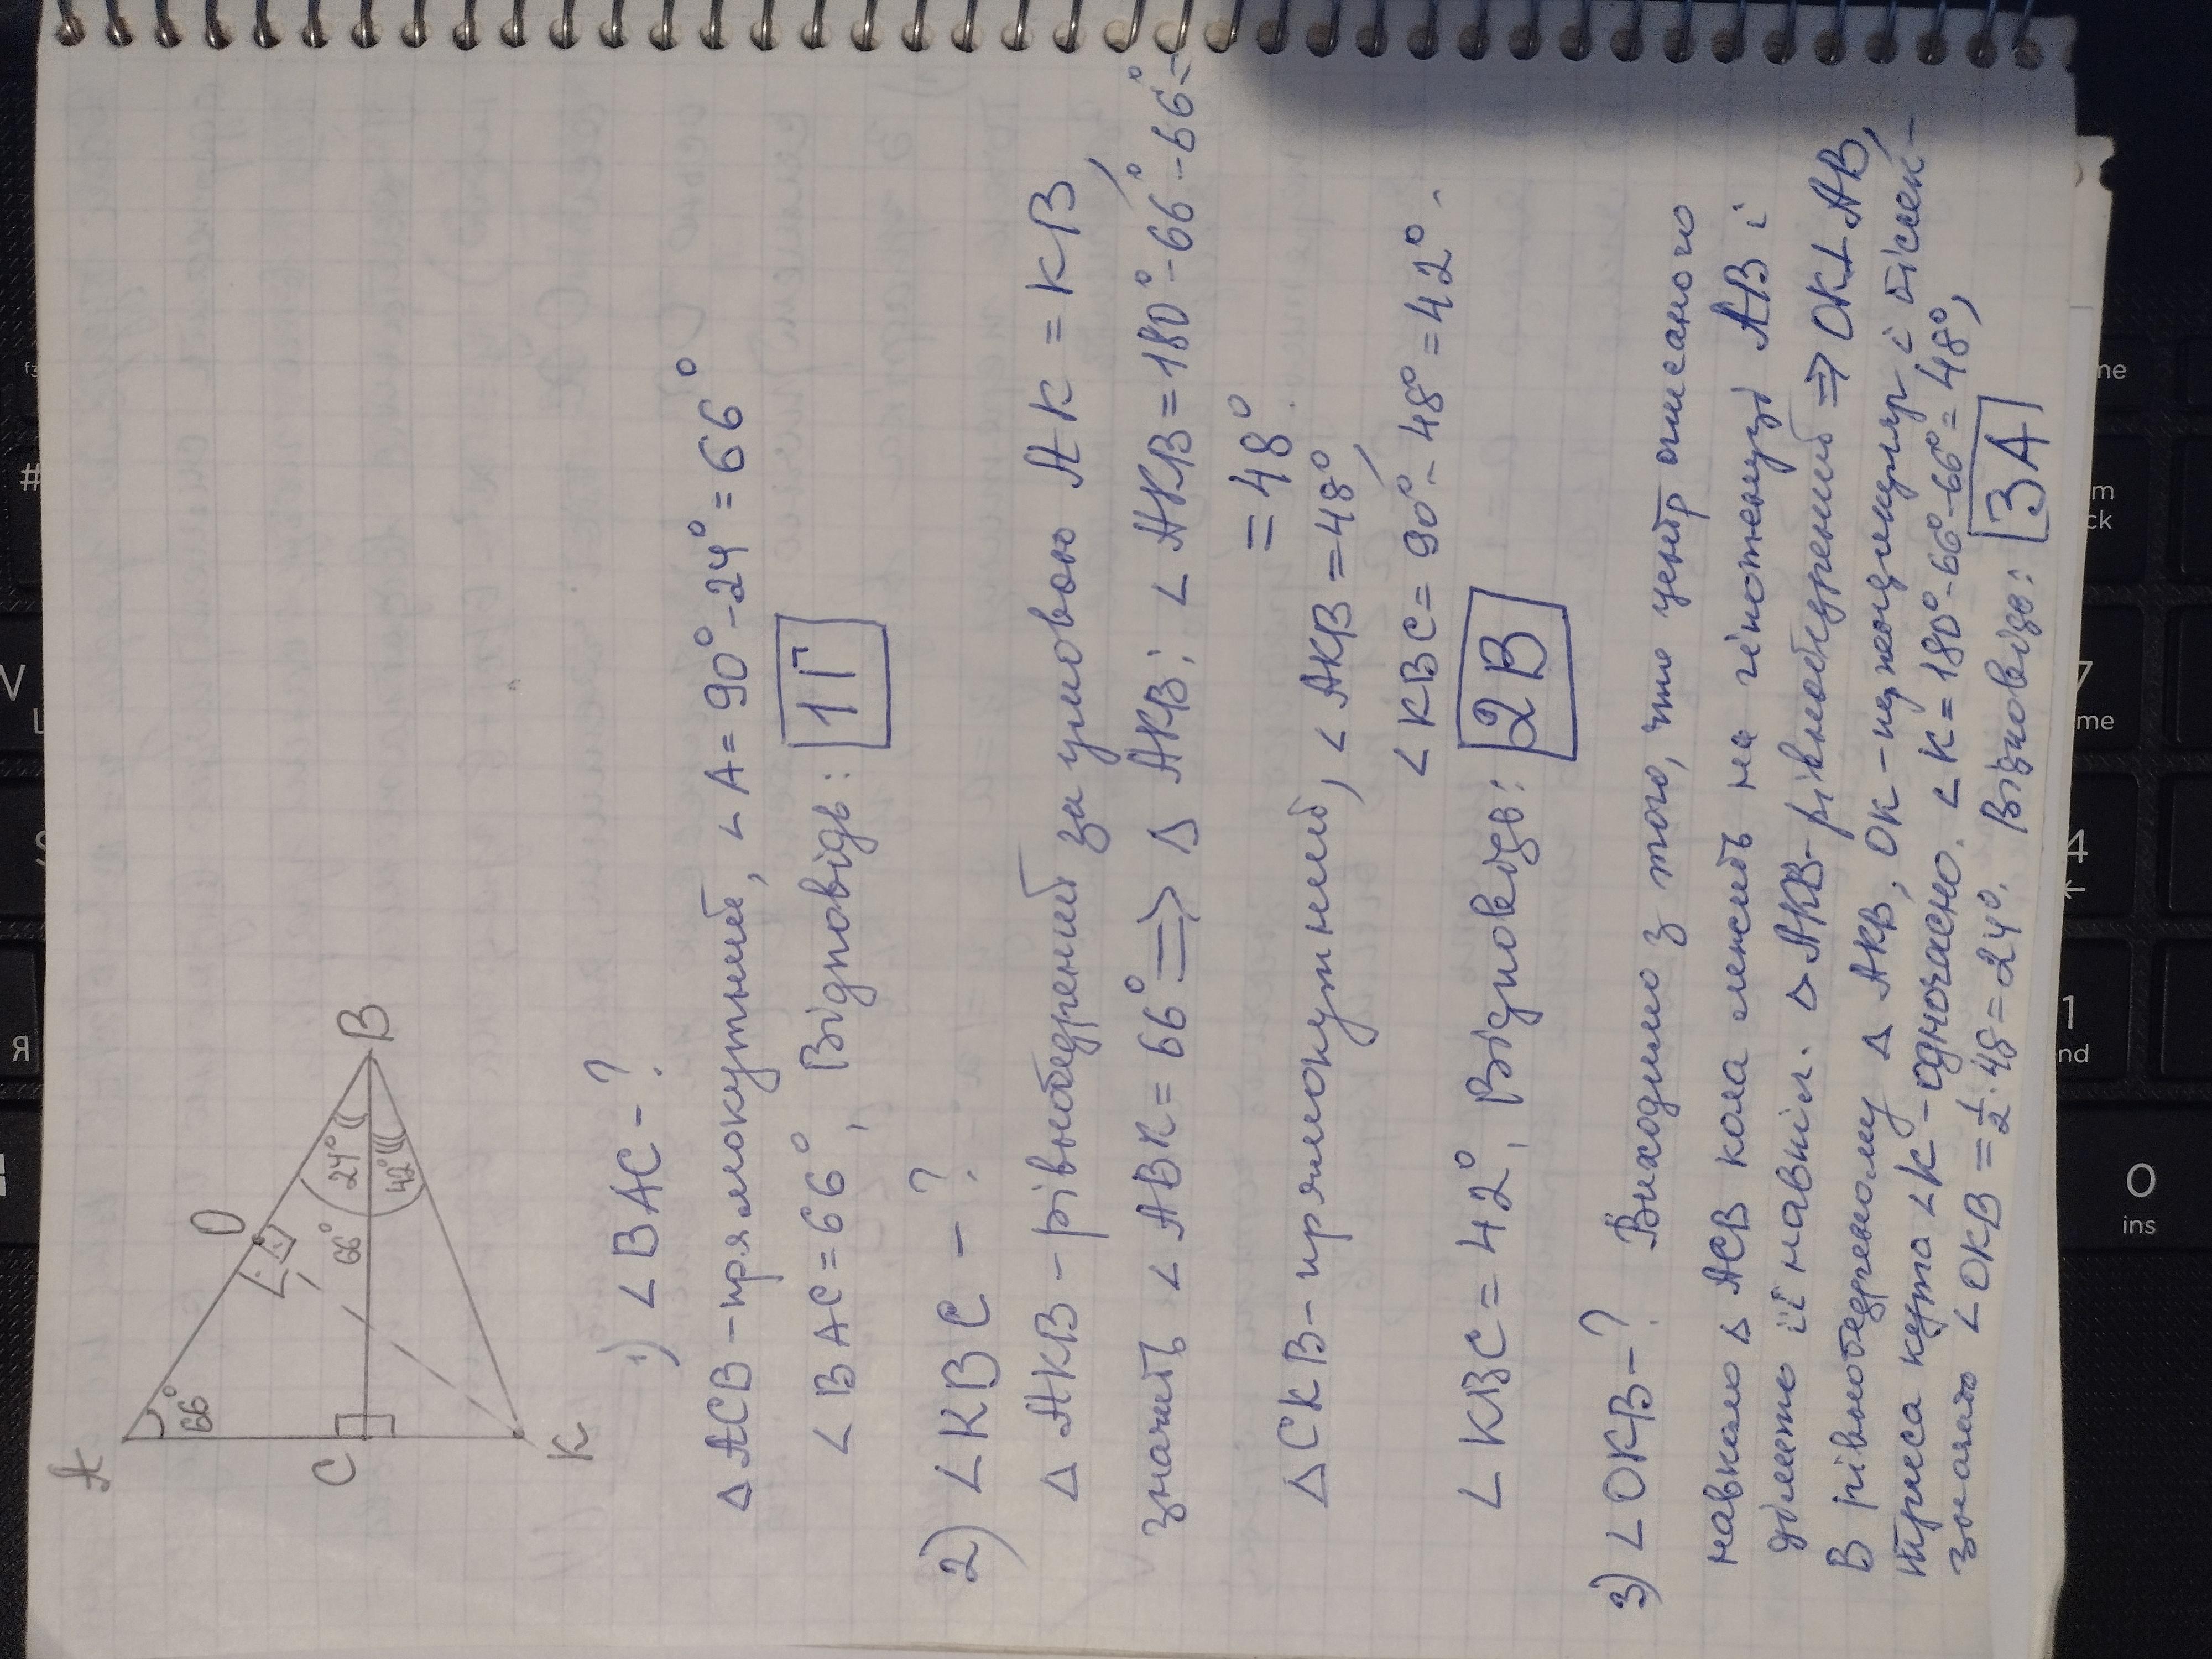 A
66°
O
66°
24°
42°
B
C
K
1) ∠BAC - ?
△ACB - прямокутний, ∠A = 90° - 24° = 66°
∠BAC = 66°, Відповідь: 1Г
2) ∠KBC - ?
△AKB - рівнобедрений за умовою AK = KB,
значить ∠ABK = 66° ⇒ △AKB: ∠AKB = 180° - 66° - 66° =
= 48°
△CKB - прямокутний, ∠AKB = 48°,
∠KBC = 90° - 48° = 42°.
∠KBC = 42°, Відповідь: 2В
3) ∠OKB - ? Виходимо з того, что центр описаного
навколо △ACB кола лежить на гіпотенузі AB і
ділить її навпіл. △AKB - рівнобедрений ⇒ OK⊥AB,
В рівнобедреному △AKB, OK - і бісек-
триса кута ∠K - одночасно. ∠K = 180° - 66° - 66° = 48°,
значить ∠OKB = 1/2 · 48 = 24°. Відповідь: 3А
V
S
Я
#
7
4
1
O
ins